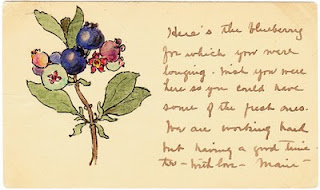 Here's the blueberry
for which you were
longing. Wish you were
here so you could have
some of the fresh ones.
We are working hard
but having a good time
too - With love - Marie -